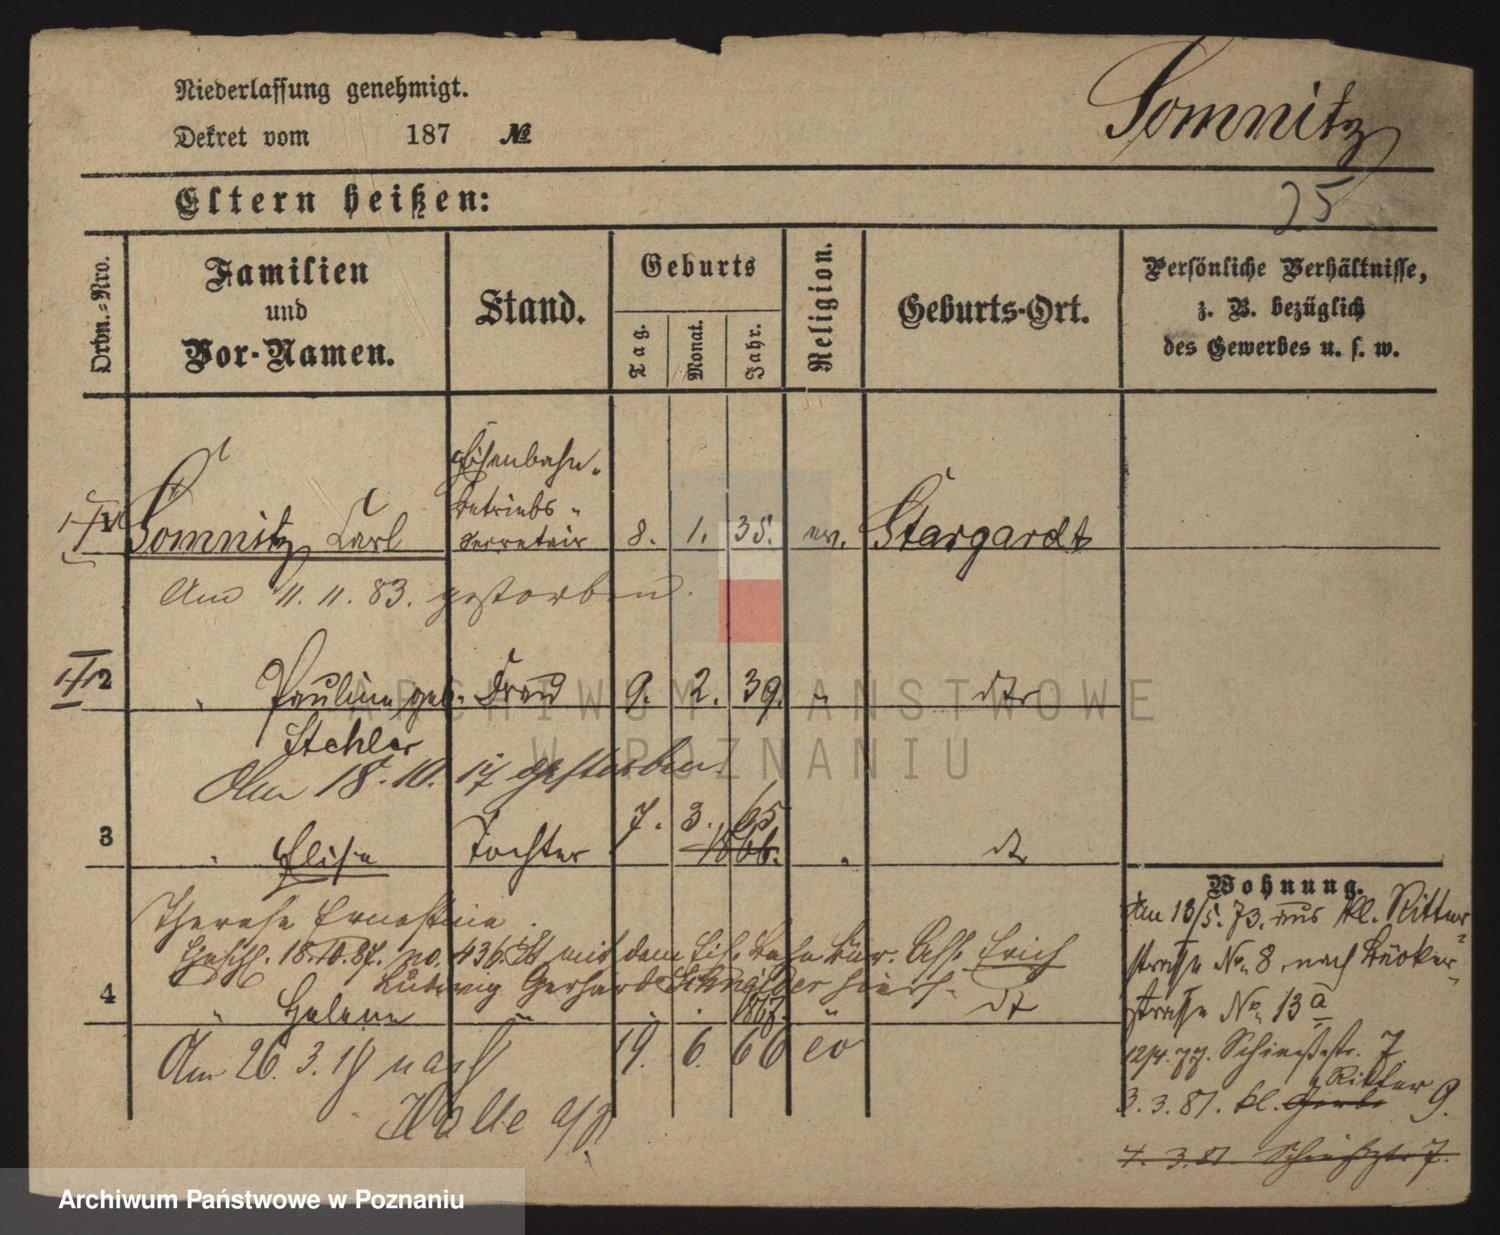 Niederlassung genehmigt.
Dekret vom 187 №
Somnitz
25
Eltern heißen:
Ordn.-Nro.
Familien und Vor-Namen.
Stand.
Geburts
Tag.
Monat.
Jahr.
Religion.
Geburts-Ort.
Persönliche Verhältnisse,
z. B. bezüglich
des Gewerbes u. s. w.
Eisenbahn-
betriebs-
1 Somnitz Carl secretair 8. 1. 35. ev. Stargardt
Am 11.11.83. gestorben.
2 " Pauline geb. Frau 9. 2. 39. " dto
Stehler
Am 18.10.17 gestorben.
7. 3. 65
3 " Elise Tochter 1866. " dto
Therese Ernestine.
18.10.87. no. 436 mit dem Erich
Ludwig Gerhard Schneider hier
4 " Helene " " " 1867. " dto
Am 26.3.19 nach 19. 6. 66 ev
Halle a/S.
Wohnung.
Am 13/5.73. aus kl. Ritter-
straße No. 8 nach Bäcker-
straße No. 13a
12/4.77. Schießstr. 7
Ritter
3.3.81. kl. Gerbe 9.
4.3.81. Schießstr 7.
ARCHIWUM PAŃSTWOWE
W POZNANIU
Archiwum Państwowe w Poznaniu